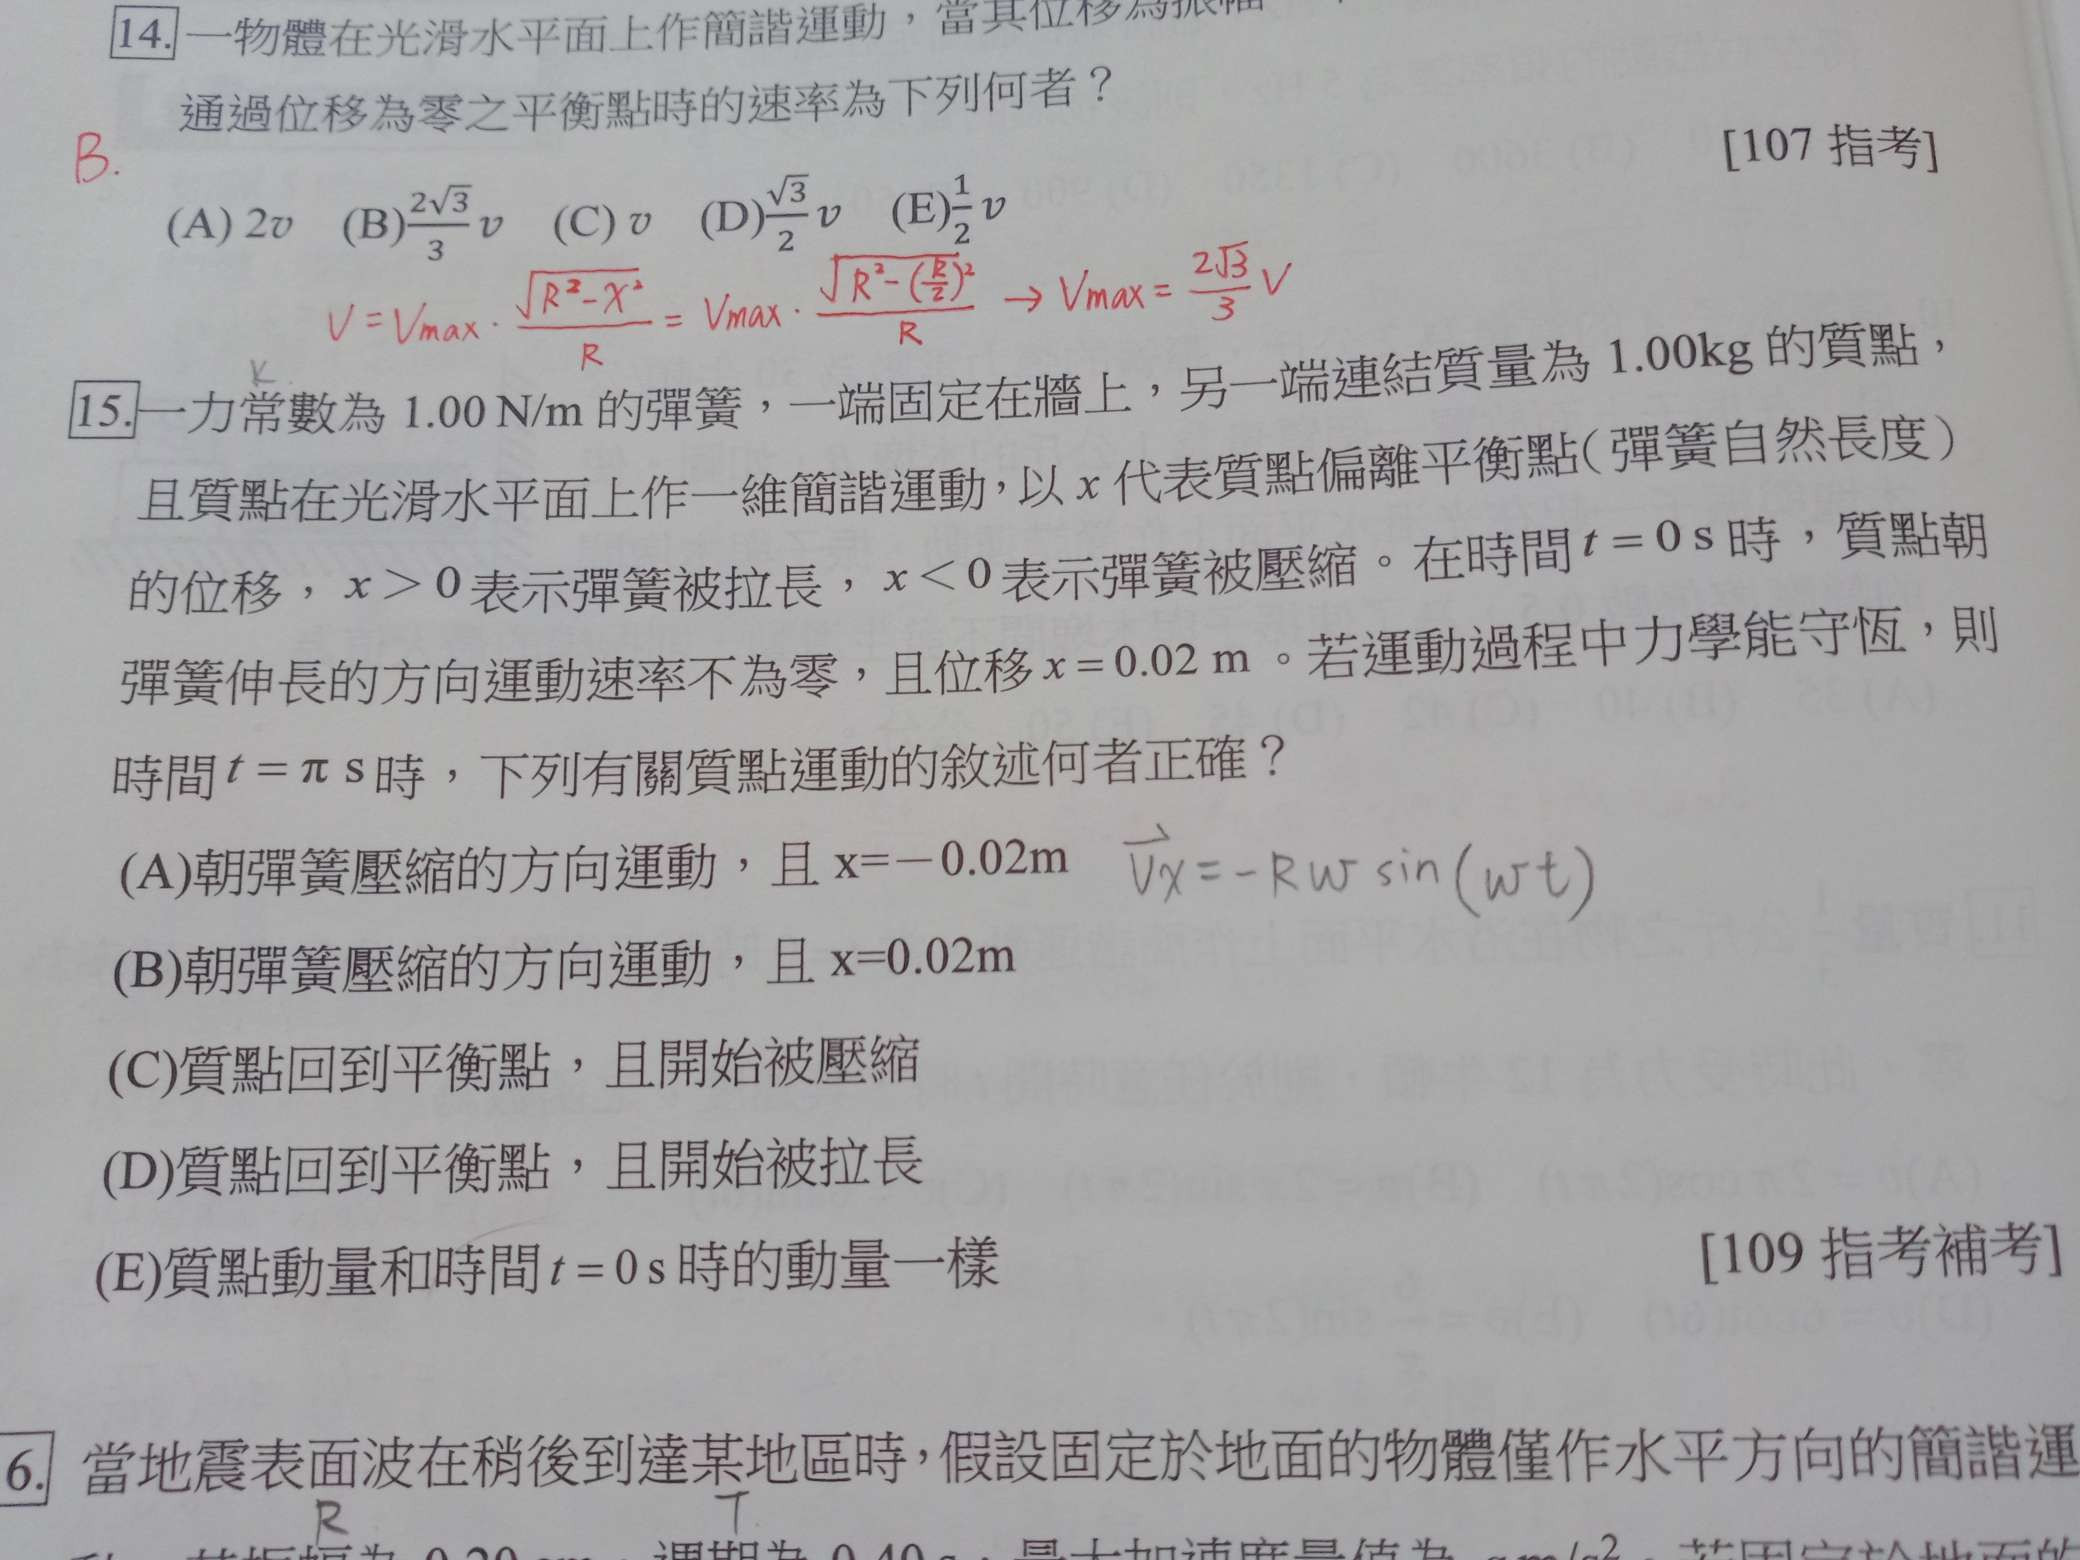 14. 一物體在光滑水平面上作簡諧運動，當其位移為振幅
通過位移為零之平衡點時的速率為下列何者？
[107 指考]
B.
(A) 2v (B) 2√3/3 v (C) v (D) √3/2 v (E) 1/2 v
V = Vmax · √(R²-x²)/R = Vmax · √(R²-(R/2)²)/R → Vmax = 2√3/3 V
K
15. 一力常數為 1.00 N/m 的彈簧，一端固定在牆上，另一端連結質量為 1.00kg 的質點，
且質點在光滑水平面上作一維簡諧運動，以 x 代表質點偏離平衡點（彈簧自然長度）
的位移，x > 0 表示彈簧被拉長，x < 0 表示彈簧被壓縮。在時間 t = 0 s 時，質點朝
彈簧伸長的方向運動速率不為零，且位移 x = 0.02 m 。若運動過程中力學能守恆，則
時間 t = π s 時，下列有關質點運動的敘述何者正確？
(A)朝彈簧壓縮的方向運動，且 x=－0.02m
Vx = -Rw sin(wt)
(B)朝彈簧壓縮的方向運動，且 x=0.02m
(C)質點回到平衡點，且開始被壓縮
(D)質點回到平衡點，且開始被拉長
(E)質點動量和時間 t = 0 s 時的動量一樣
[109 指考補考]
6. 當地震表面波在稍後到達某地區時，假設固定於地面的物體僅作水平方向的簡諧運
R T
動，其振幅為 0.20 cm，週期為 0.40 s，最大加速度量值為 a m/s²。若固定於地面的